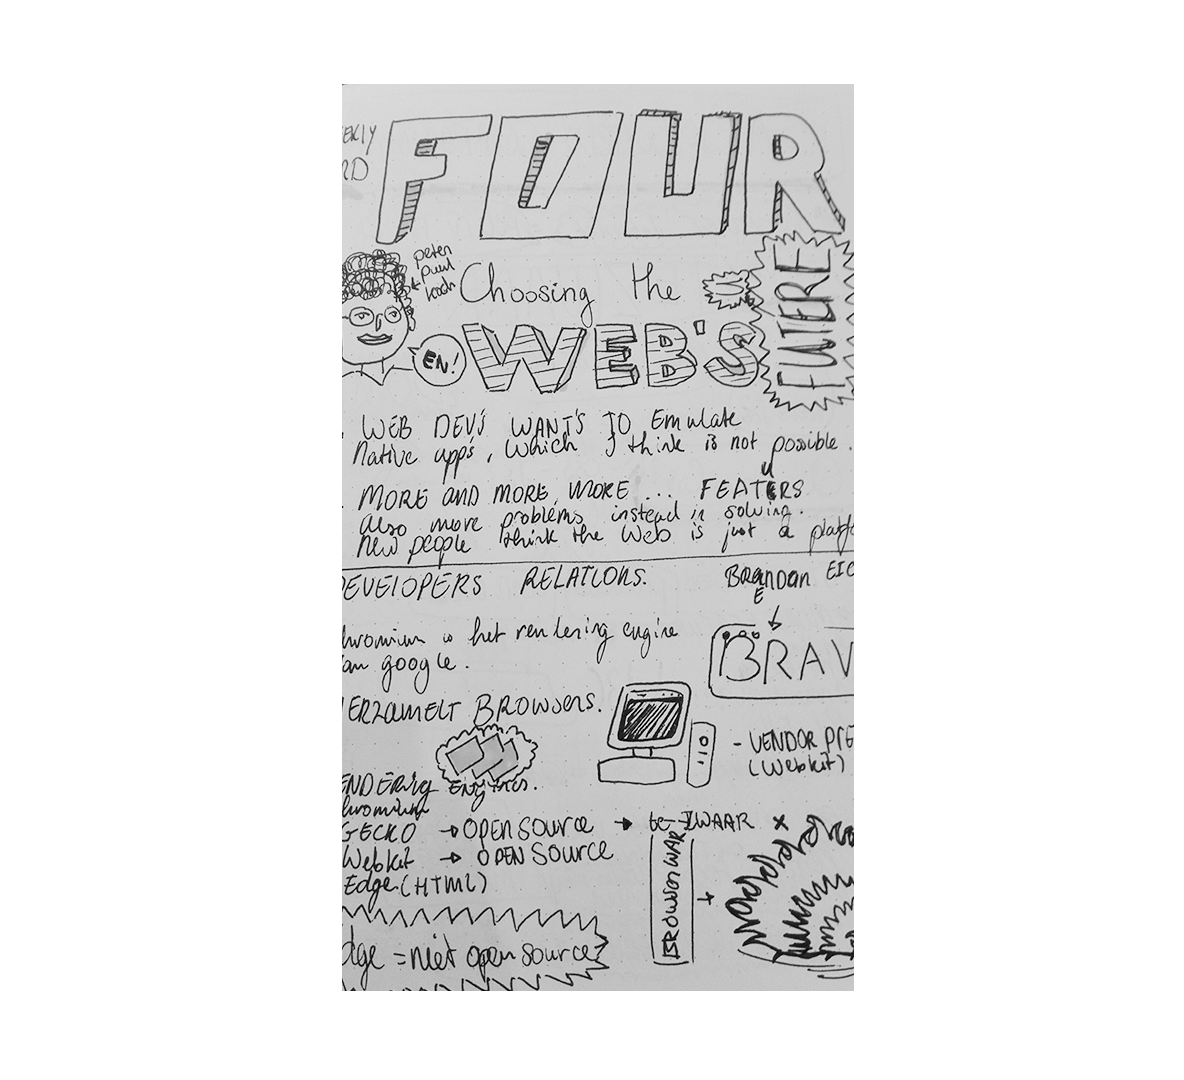 EKLY
FOUR
RD
peter
paul
koch
Choosing the
WEB'S
FUTERE
EN!
WEB DEV'S WANT'S TO Emulate
Native apps, which I think is not possible.
MORE AND MORE, MORE ... FEATURS
also more problems instead in solving.
New people think the Web is just a platf
DEVELOPERS RELATIONS.
BRENDAN EIC
hromium is het rendering engine
an google.
BRAV
ERZAMELT BROWSERS.
- VENDOR PRE
(Webkit)
ENDERING ENgines.
hromium
GECKO → OPEN SOURCE → te ZWAAR
Webkit → OPEN SOURCE
Edge (HTML)
BROWSER WAR
dge = niet open source